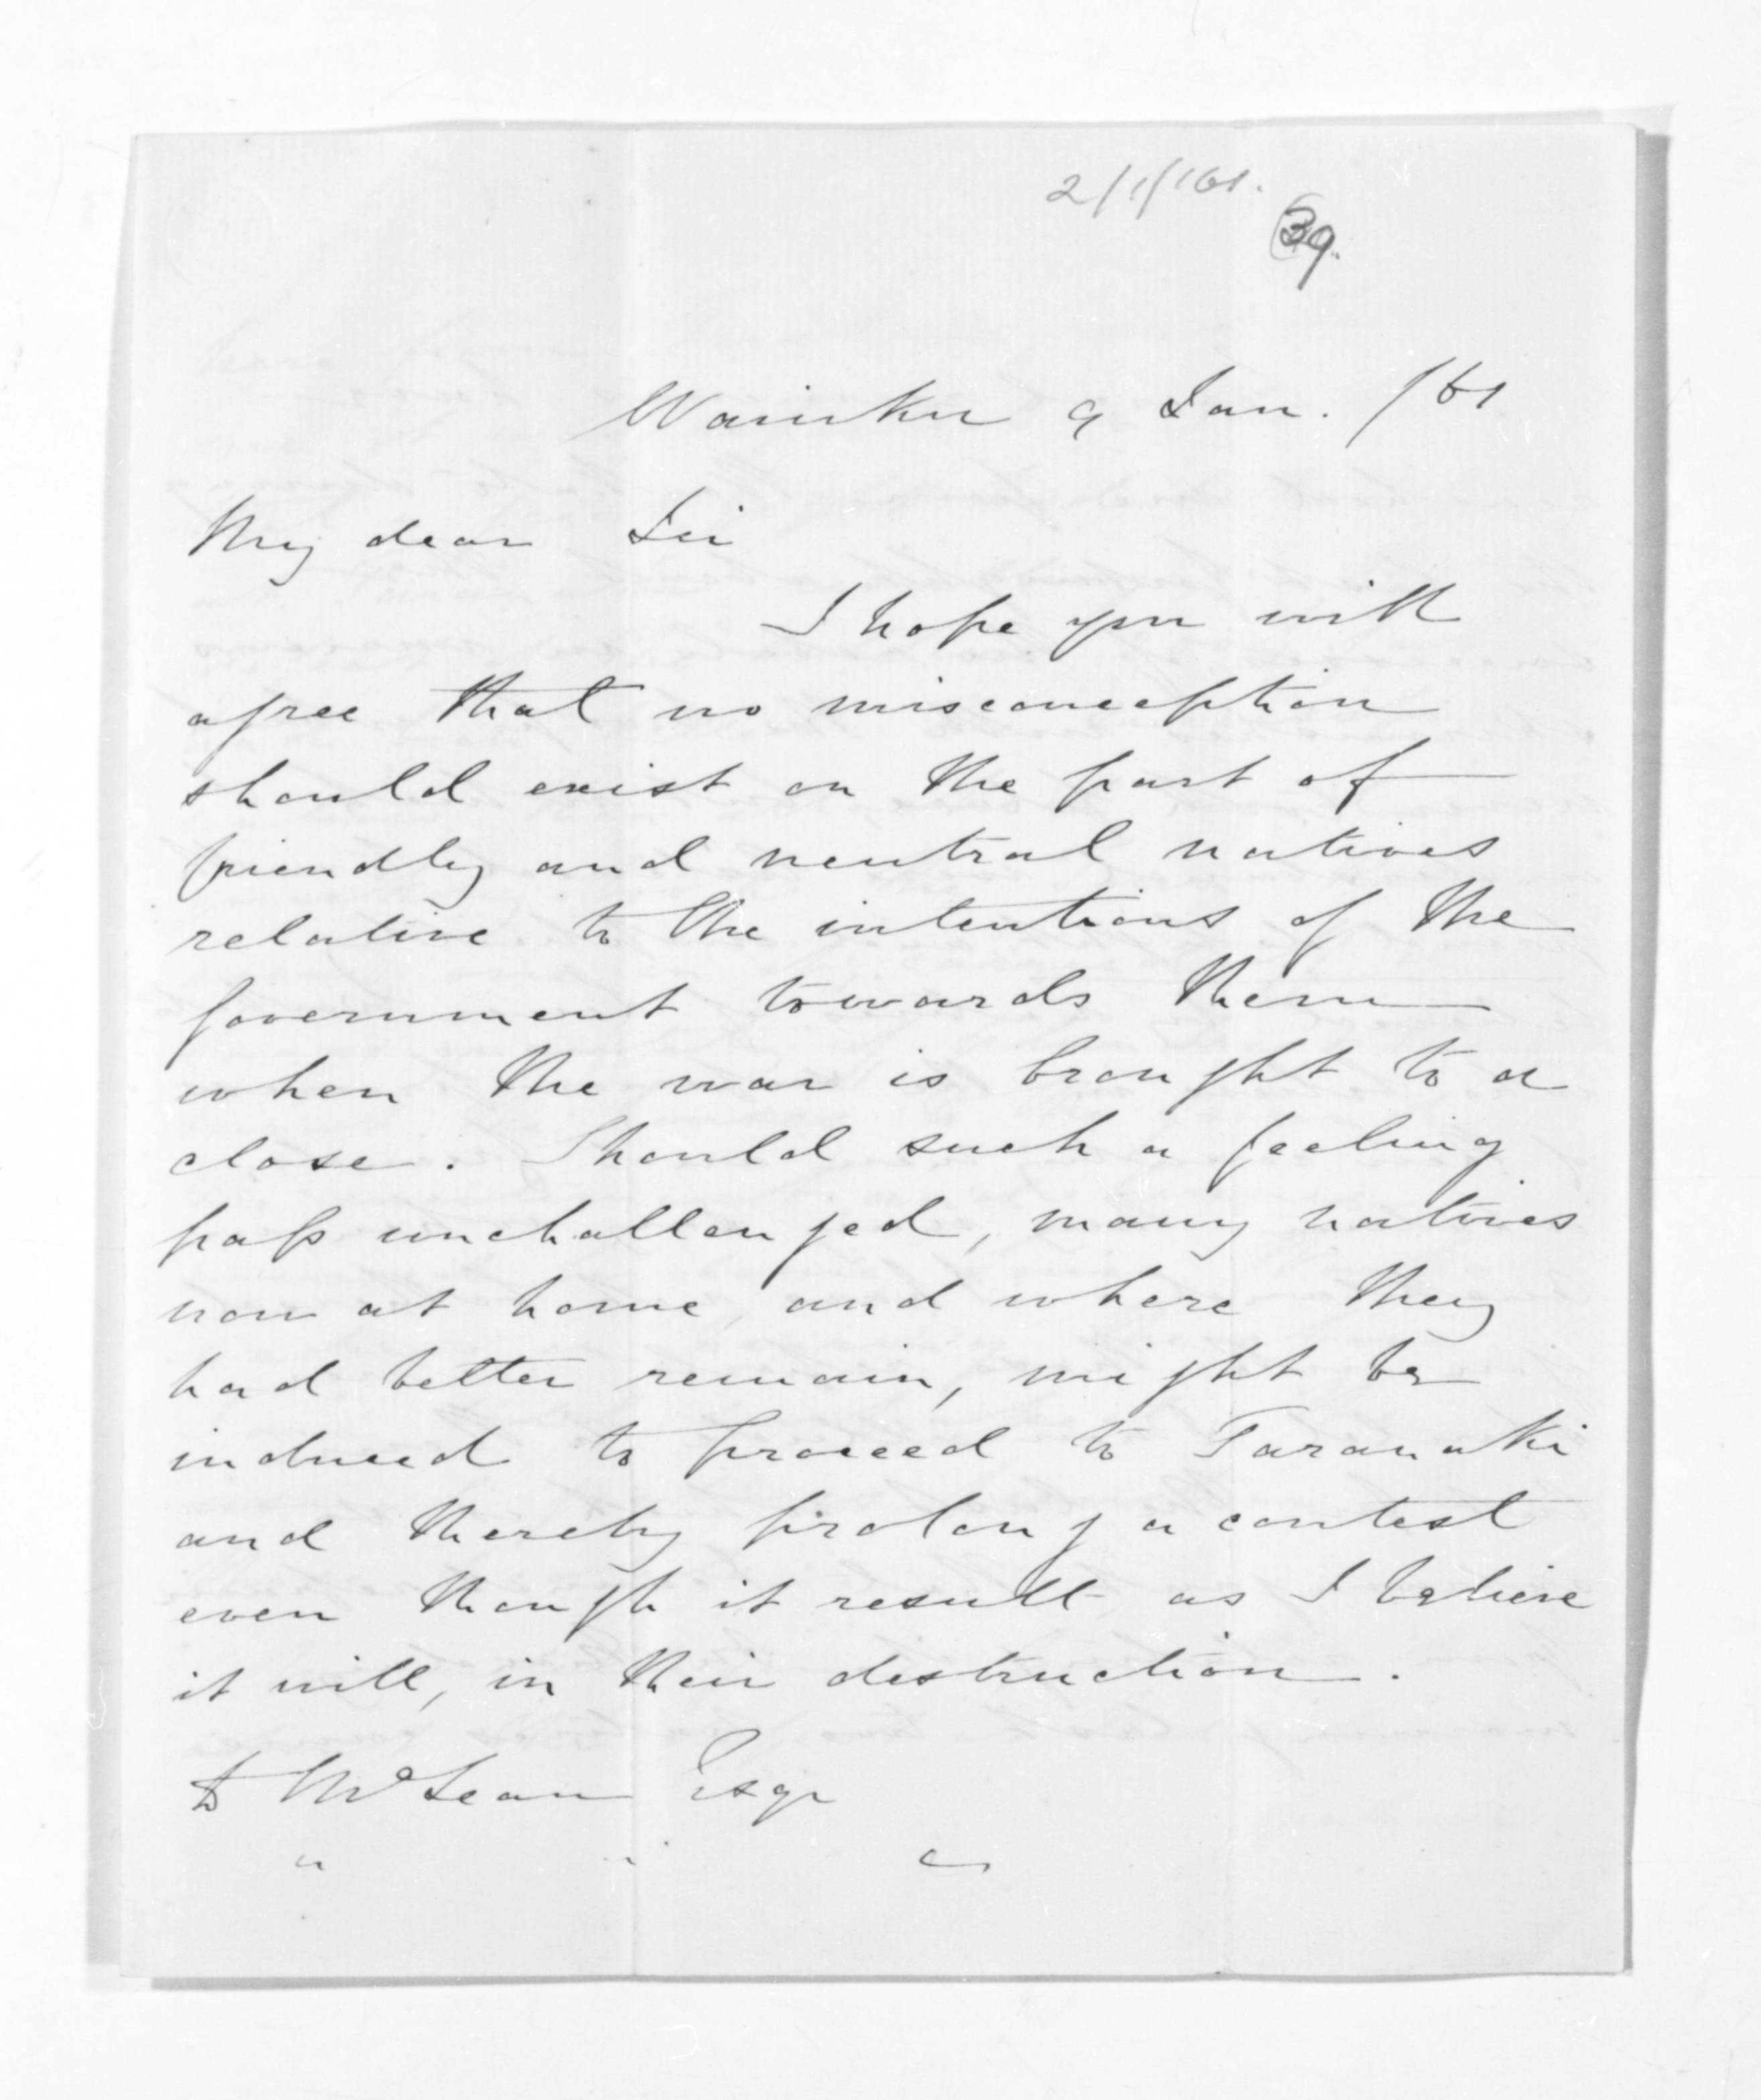 2/1/161.
39.
Waiuku 9 Jan. /61
My dear Sir
I hope you will
agree that no misconception
should exist on the part of
friendly and neutral natives
relative to the intentions of the
Government towards them
when the war is brought to a
close. Should such a feeling
pass unchallenged, many natives
now at home, and where they
had better remain, might be
induced to proceed to Taranaki
and thereby prolong a contest
even though it result as I believe
it will, in their destruction.
D McLean Esqr
" " "